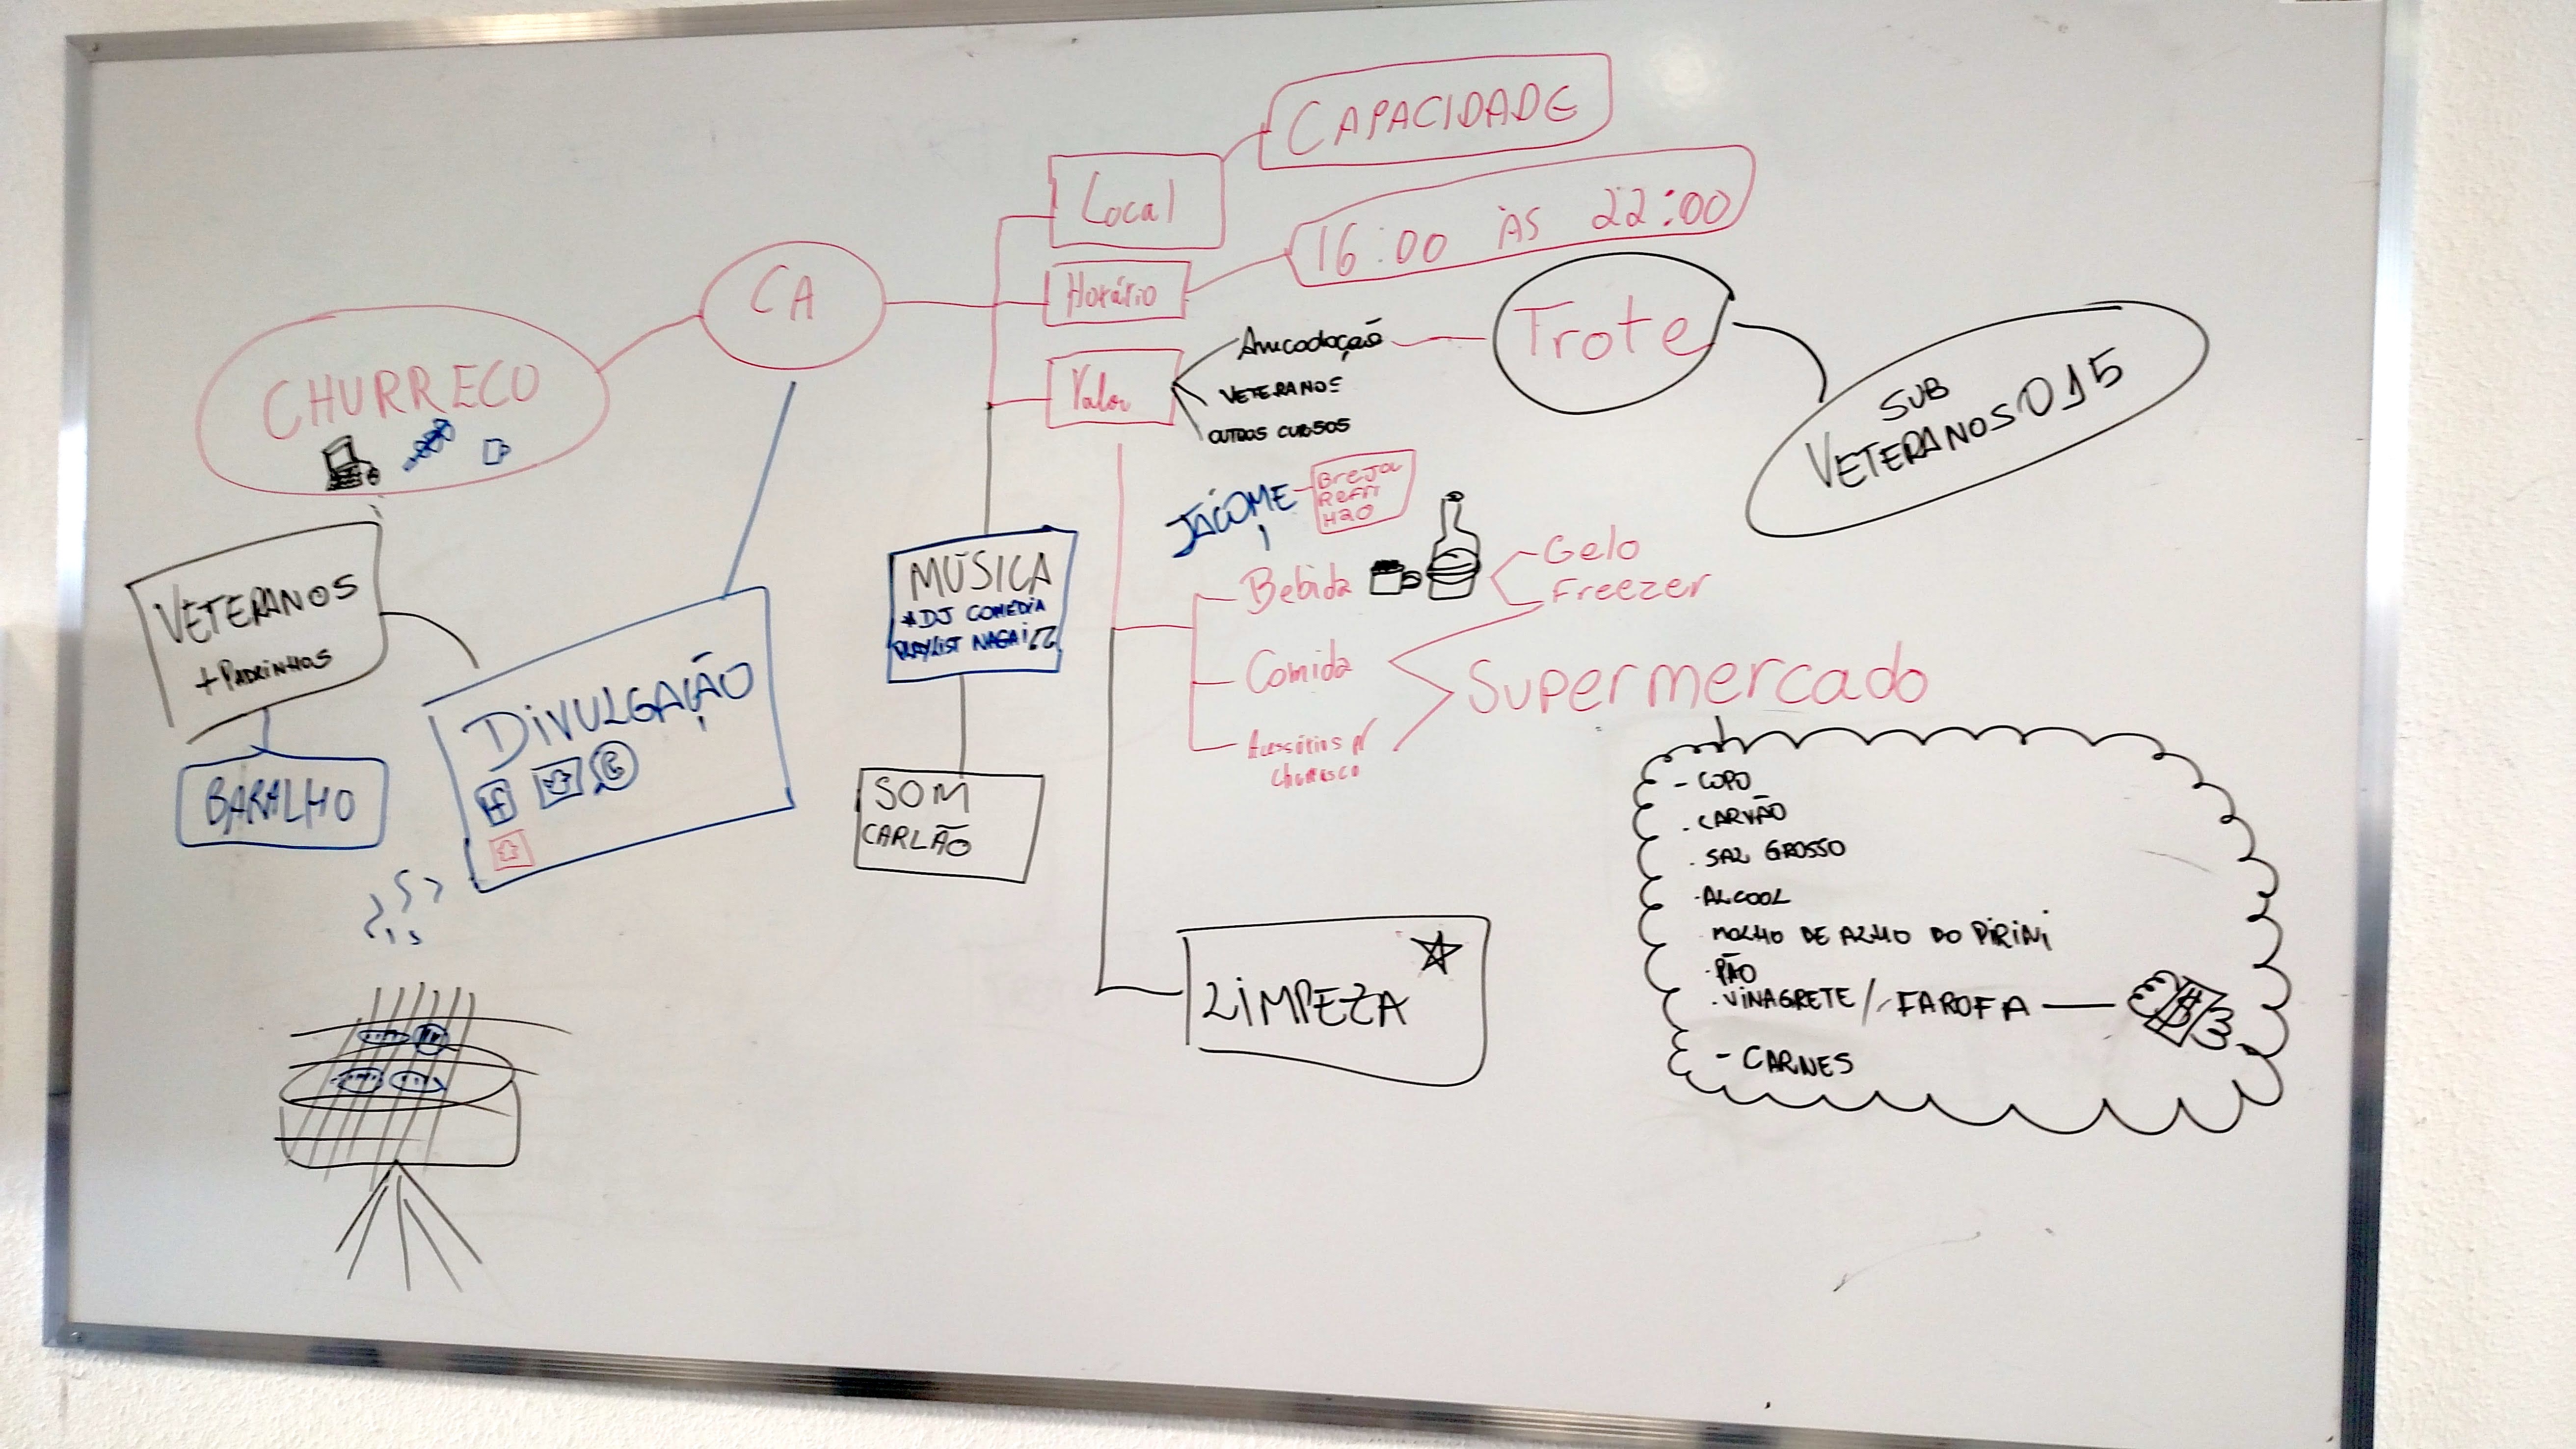 CAPACIDADE
Local
16:00 ÀS 22:00
Horário
CA
Trote
CHURRECO
Valor
VETERANOS
OUTROS CURSOS
SUB
VETERANOS 015
JÁCOME
Breja
Refri
H2O
Bebida
Gelo
Freezer
MÚSICA
*DJ COMÉDIA
PLAYLIST NAGAI
VETERANOS
+ PADRINHOS
Comida
Supermercado
DIVULGAÇÃO
f
Acessórios p/
churrasco
BARALHO
SOM
CARLÃO
- COPO
. CARVÃO
. SAL GROSSO
. ALCOOL
. MOLHO DE ALHO DO PIRINI
. PÃO
. VINAGRETE / FAROFA
- CARNES
LIMPEZA